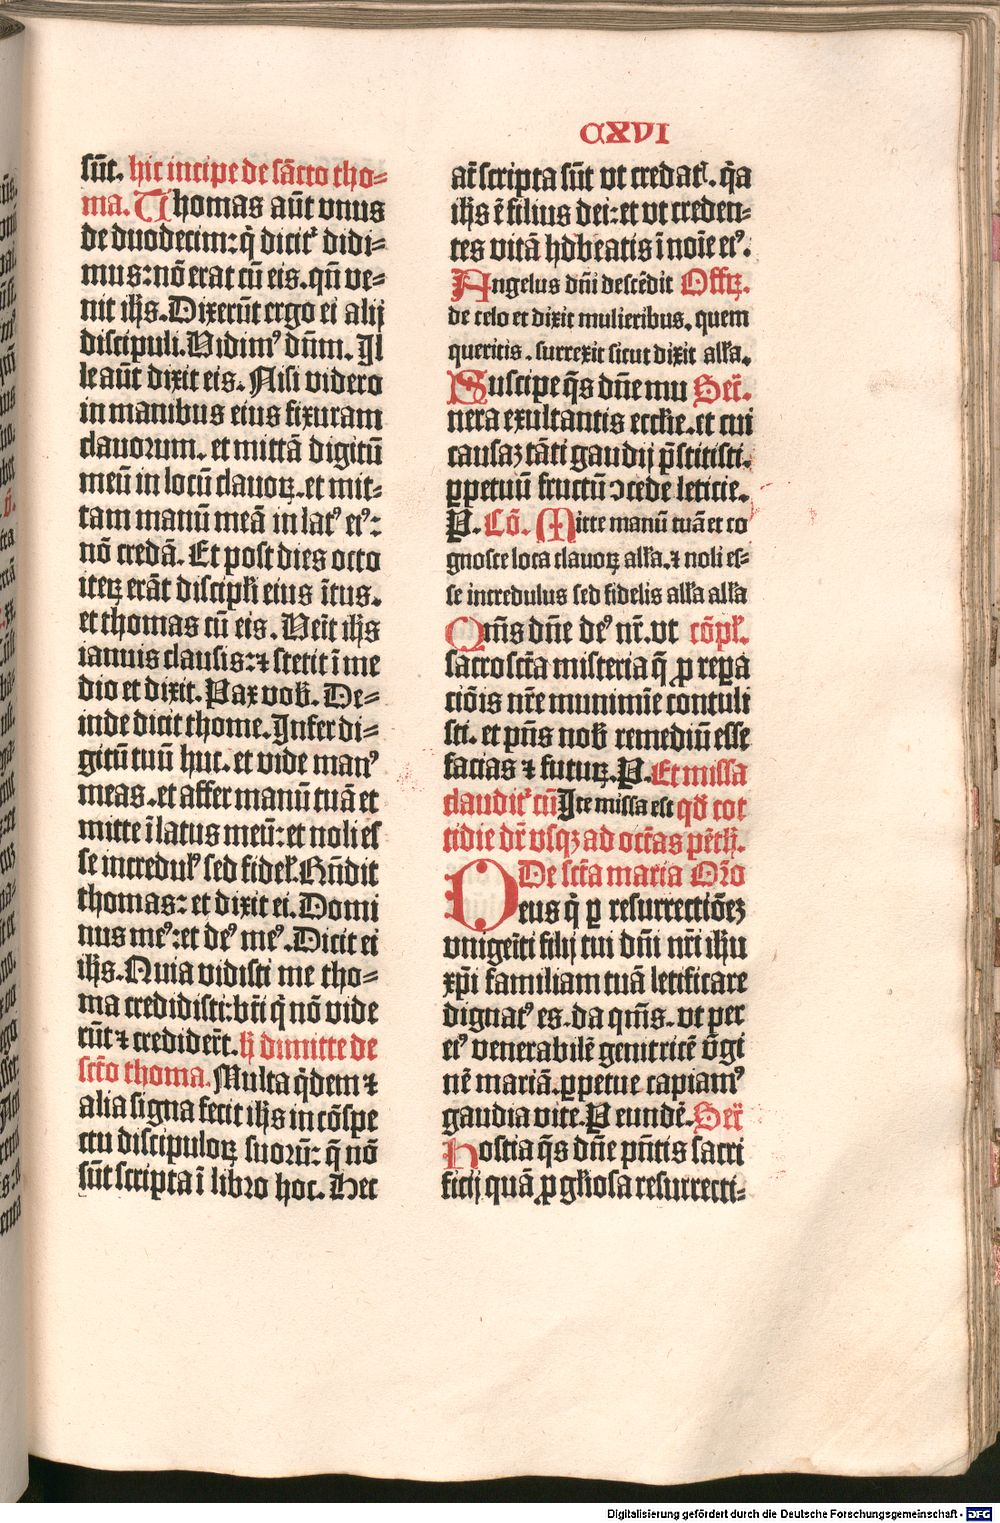 CXVI
sūt. hic incipe de sācto tho-
ma. Thomas aūt vnus
de duodecim: q̄ dicit᷑ didi-
mus: nō erat cū eis. qn̄ ve-
nit ih̄s. Dixerūt ergo ei alij
discipuli. Vidimꝰ dn̄m. Il
le aūt dixit eis. Nisi videro
in manibus eius fixuram
clauorum. et mittā digitū
meū in locū clauoꝝ. et mit-
tam manū meā in latꝰ eiꝰ:
nō credā. Et post dies octo
iteꝝ erāt discipl̄i eius ītus.
et thomas cū eis. Veīt ih̄s
ianuis clausis: ⁊ stetit ī me
dio et dixit. Pax vob̄. De-
inde dicit thome. Infer di-
gitū tuū huc. et vide manꝰ
meas. et affer manū tuā et
mitte ī latus meū: et noli es
se incredul᷑ sed fidel᷑. Rn̄dit
thomas: et dixit ei. Domi
nus meꝰ: et deꝰ meꝰ. Dicit ei
ih̄s. Quia vidisti me tho-
ma credidisti: bt̄i q̄ nō vide
rūt ⁊ credider̄t. h̄ dimitte de
sct̄o thoma. Multa q̄dem ⁊
alia signa fecit ih̄s in cōspe
ctu discipuloꝝ suorū: q̄ nō
sūt scripta ī libro hoc. Hec
at̄ scripta sūt vt credat᷑. q̄a
ih̄s ē filius dei: et vt creden-
tes vitā hābeatis ī noīe eiꝰ.
Angelus dn̄i descēdit Offꝝ.
de celo et dixit mulieribus. quem
queritis. surrexit sicut dixit all̄a.
Suscipe q̄s dn̄e mu Secr̄.
nera exultantis eccl̄ie. et cui
causaꝫ tāti gaudij p̄stitisti.
ꝑpetuū fructū ↄcede leticie.
P. Cō. Mitte manū tuā et co
gnosce loca clauoꝝ all̄a. ⁊ noli es-
se incredulus sed fidelis all̄a all̄a
Qm̄s dn̄e deꝰ nr̄. vt cōpl᷑.
sacroscta misteria q̄ ꝓ repa
ciōis nr̄e munimīe contuli
sti. et pn̄s nob̄ remediū esse
facias ⁊ futuꝝ. P. Et missa
claudit᷑ cū Ite missa est qd̄ cot
tidie dr̄ vsqꝫ ad octāas pēth̄.
De sct̄a maria Or̄o
Deus q̄ ꝑ resurrectiōeꝫ
vnigeīti filij tui dn̄i nr̄i ih̄u
xp̄i familiam tuā letificare
dignatꝰ es. da qm̄s. vt per
eiꝰ venerabilē genitricē v̄gi
nē mariā. ꝑpetue capiamꝰ
gaudia vite. P eundē. Secr̄
Hostia q̄s dn̄e pn̄tis sacri
ficij quā ꝓ gl̄iosa resurrecti-
Digitalisierung gefördert durch die Deutsche Forschungsgemeinschaft - DFG